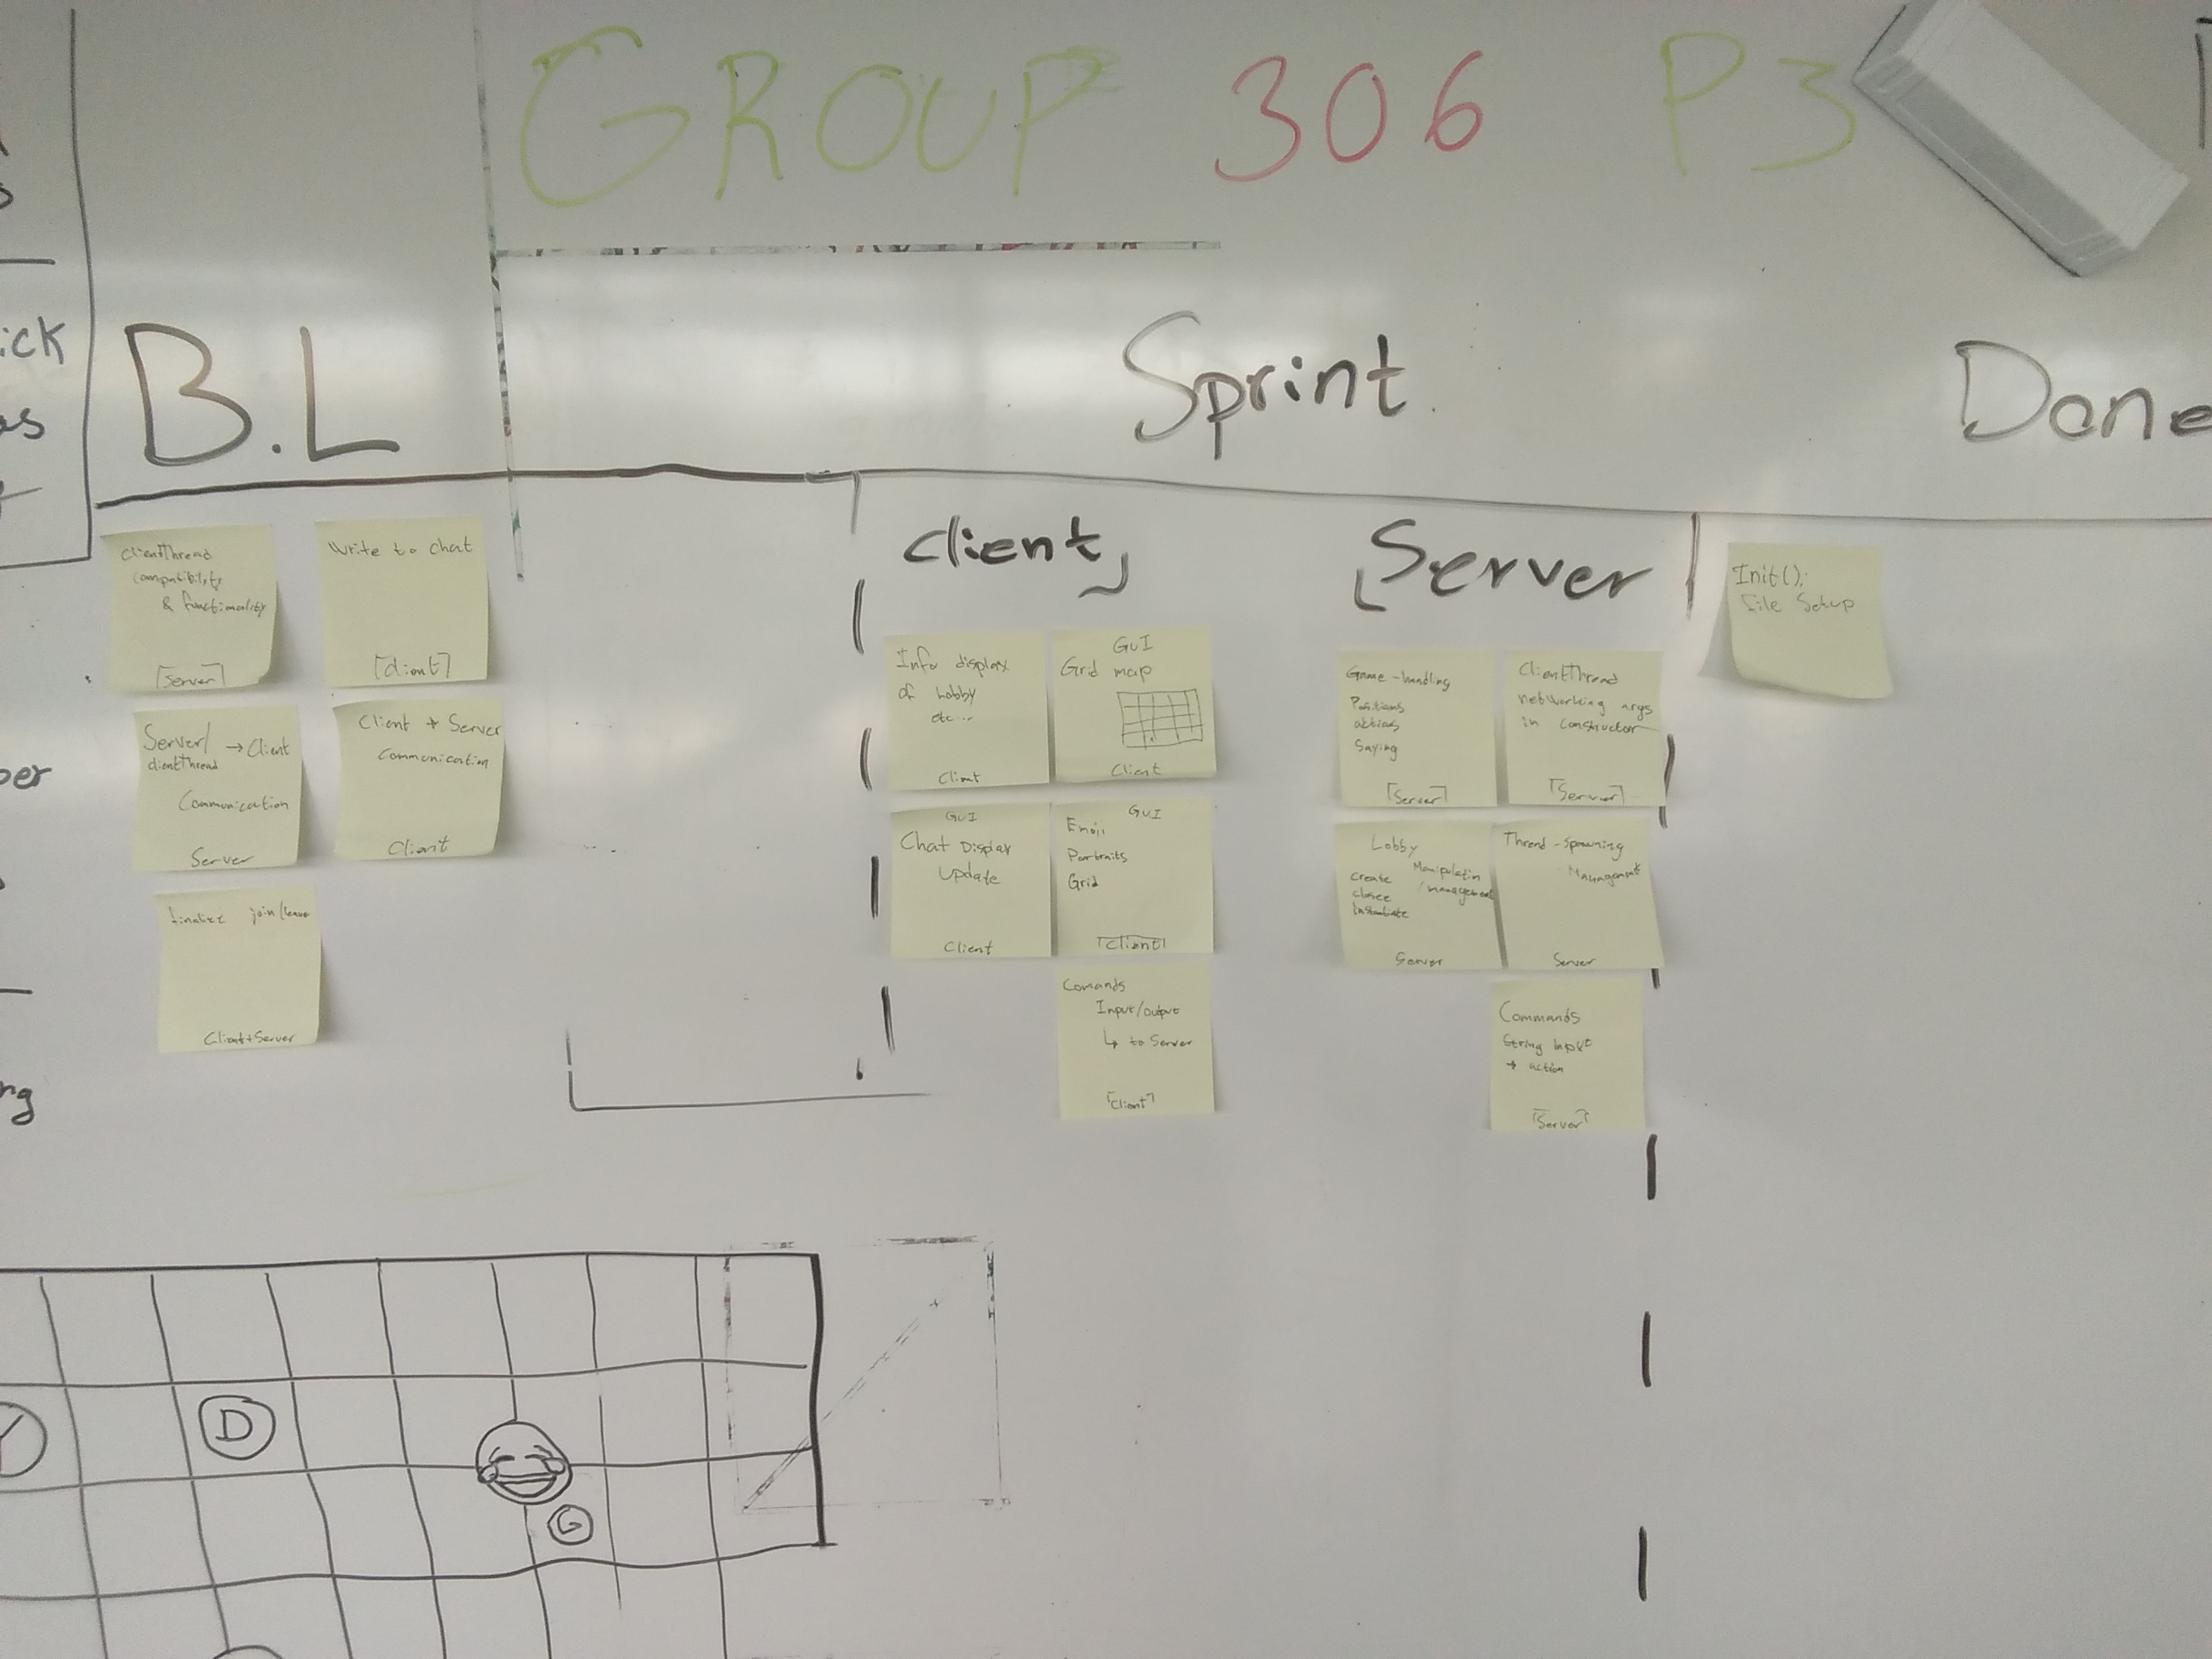 GROUP 306 P3
B.L
Sprint
Done
Client
Server
ick
as
per
ng
ClientThread
compatibility
& functionality
[Server]
Write to chat
[Client]
Server/ → Client
clientThread
Communication
Server
Client + Server
Communication
Client
finalize join/leave
Client+Server
Info display
of lobby
etc...
Client
GUI
Grid map
Client
GUI
Chat Display
Update
Client
GUI
Emoji
Portraits
Grid
[Client]
Comands
Input/Output
↳ to Server
[Client]
Game-handling
Positions
actions
Saying
[Server]
ClientThread
networking args
in constructor
[Server]
Lobby
Manipulation
create /management
close
Instantiate
Server
Thread-Spawning
Management
Server
Commands
String Input
→ action
[Server]
Init();
File Setup
D
G